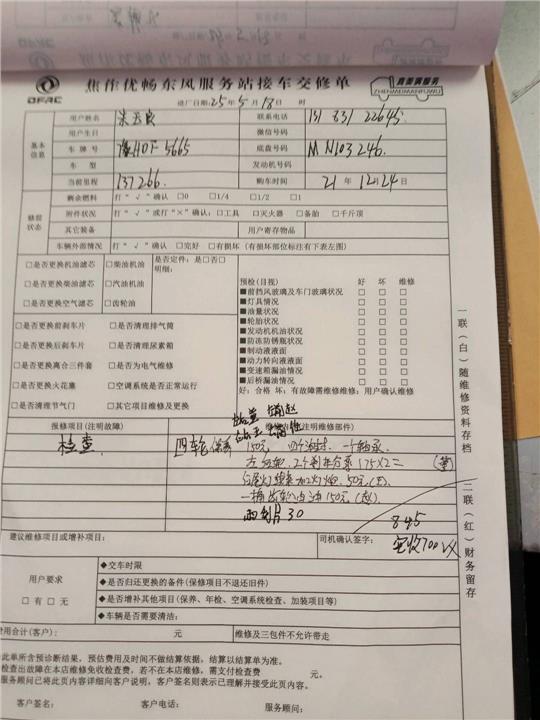 DFAC
焦作优畅东风服务站接车交修单
真美满服务
ZHENMEIMANFUWU
进厂日期:25年5月18日 时
基本信息
用户姓名
联系电话 131 831 22645
用户生日
微信号码
车牌号 豫HDF5665
底盘号码 MN103246.
车型
发动机号码
当前里程 137266.
购车时间 21年12月24日
修前状态
剩余燃料 打“√”确认 □0 □1/4 □1/2 □1
附件状况 打“√”或打“×”确认:□工具 □灭火器 □备胎 □千斤顶
其它装备
用户寄存物品
车辆外部情况 打“√”确认 □完好 □有损坏 (有损坏部位标注有下表左图)
□是否更换机油滤芯 □柴油机油
□是否更换柴油滤芯 □汽油机油
□是否更换空气滤芯 □齿轮油
是否定件:是□否□
明细:
□是否更换前刹车片 □是否清理排气筒
□是否更换后刹车片 □是否清理尿素箱
□是否更换离合三件套 □是否为电气维修
□是否更换火花塞 □空调系统是否正常运行
□是否清理节气门 □其它项目维修及更换
预检(目视) 好 坏 维修
■前挡风玻璃及车门玻璃状况 □ □ □
■灯具情况 □ □ □
■油量状况 □ □ □
■轮胎状况 □ □ □
■发动机机油状况 □ □ □
■防冻防锈瓶状况 □ □ □
■制动液液面 □ □ □
■动力转向液液面 □ □ □
■变速箱漏油情况 □ □ □
■后桥漏油情况 □ □ □
好:合格 坏:有故障需维修维修:用户确认维修
报修项目(注明故障)
注明维修部件)
检查
四轮保养 150元
175×2=
50元
150元
30
845
实收700
建议维修项目或增补项目:
司机确认签字:
用户要求
□有 □无
◆交车时限
◆是否归还更换的备件(保修项目不退还旧件)
◆是否增补其他项目(保养、年检、空调系统检查、加装项目等)
◆车辆是否需要清洁:
费用合计(客户): 元
维修及三包件不允许带走
此单所含预诊断结果,预估费用及时间不做结算依据,结算以结算单为准。
检查出故障在本店维修免收检查费,若不在本店维修,需支付检查费 元。
服务顾问已将此页内容详细向客户说明,客户签名则表示已理解并接受此页内容。
客户签名: 客户电话: 服务顾问:
一联(白)随维修资料存档
二联(红)财务留存